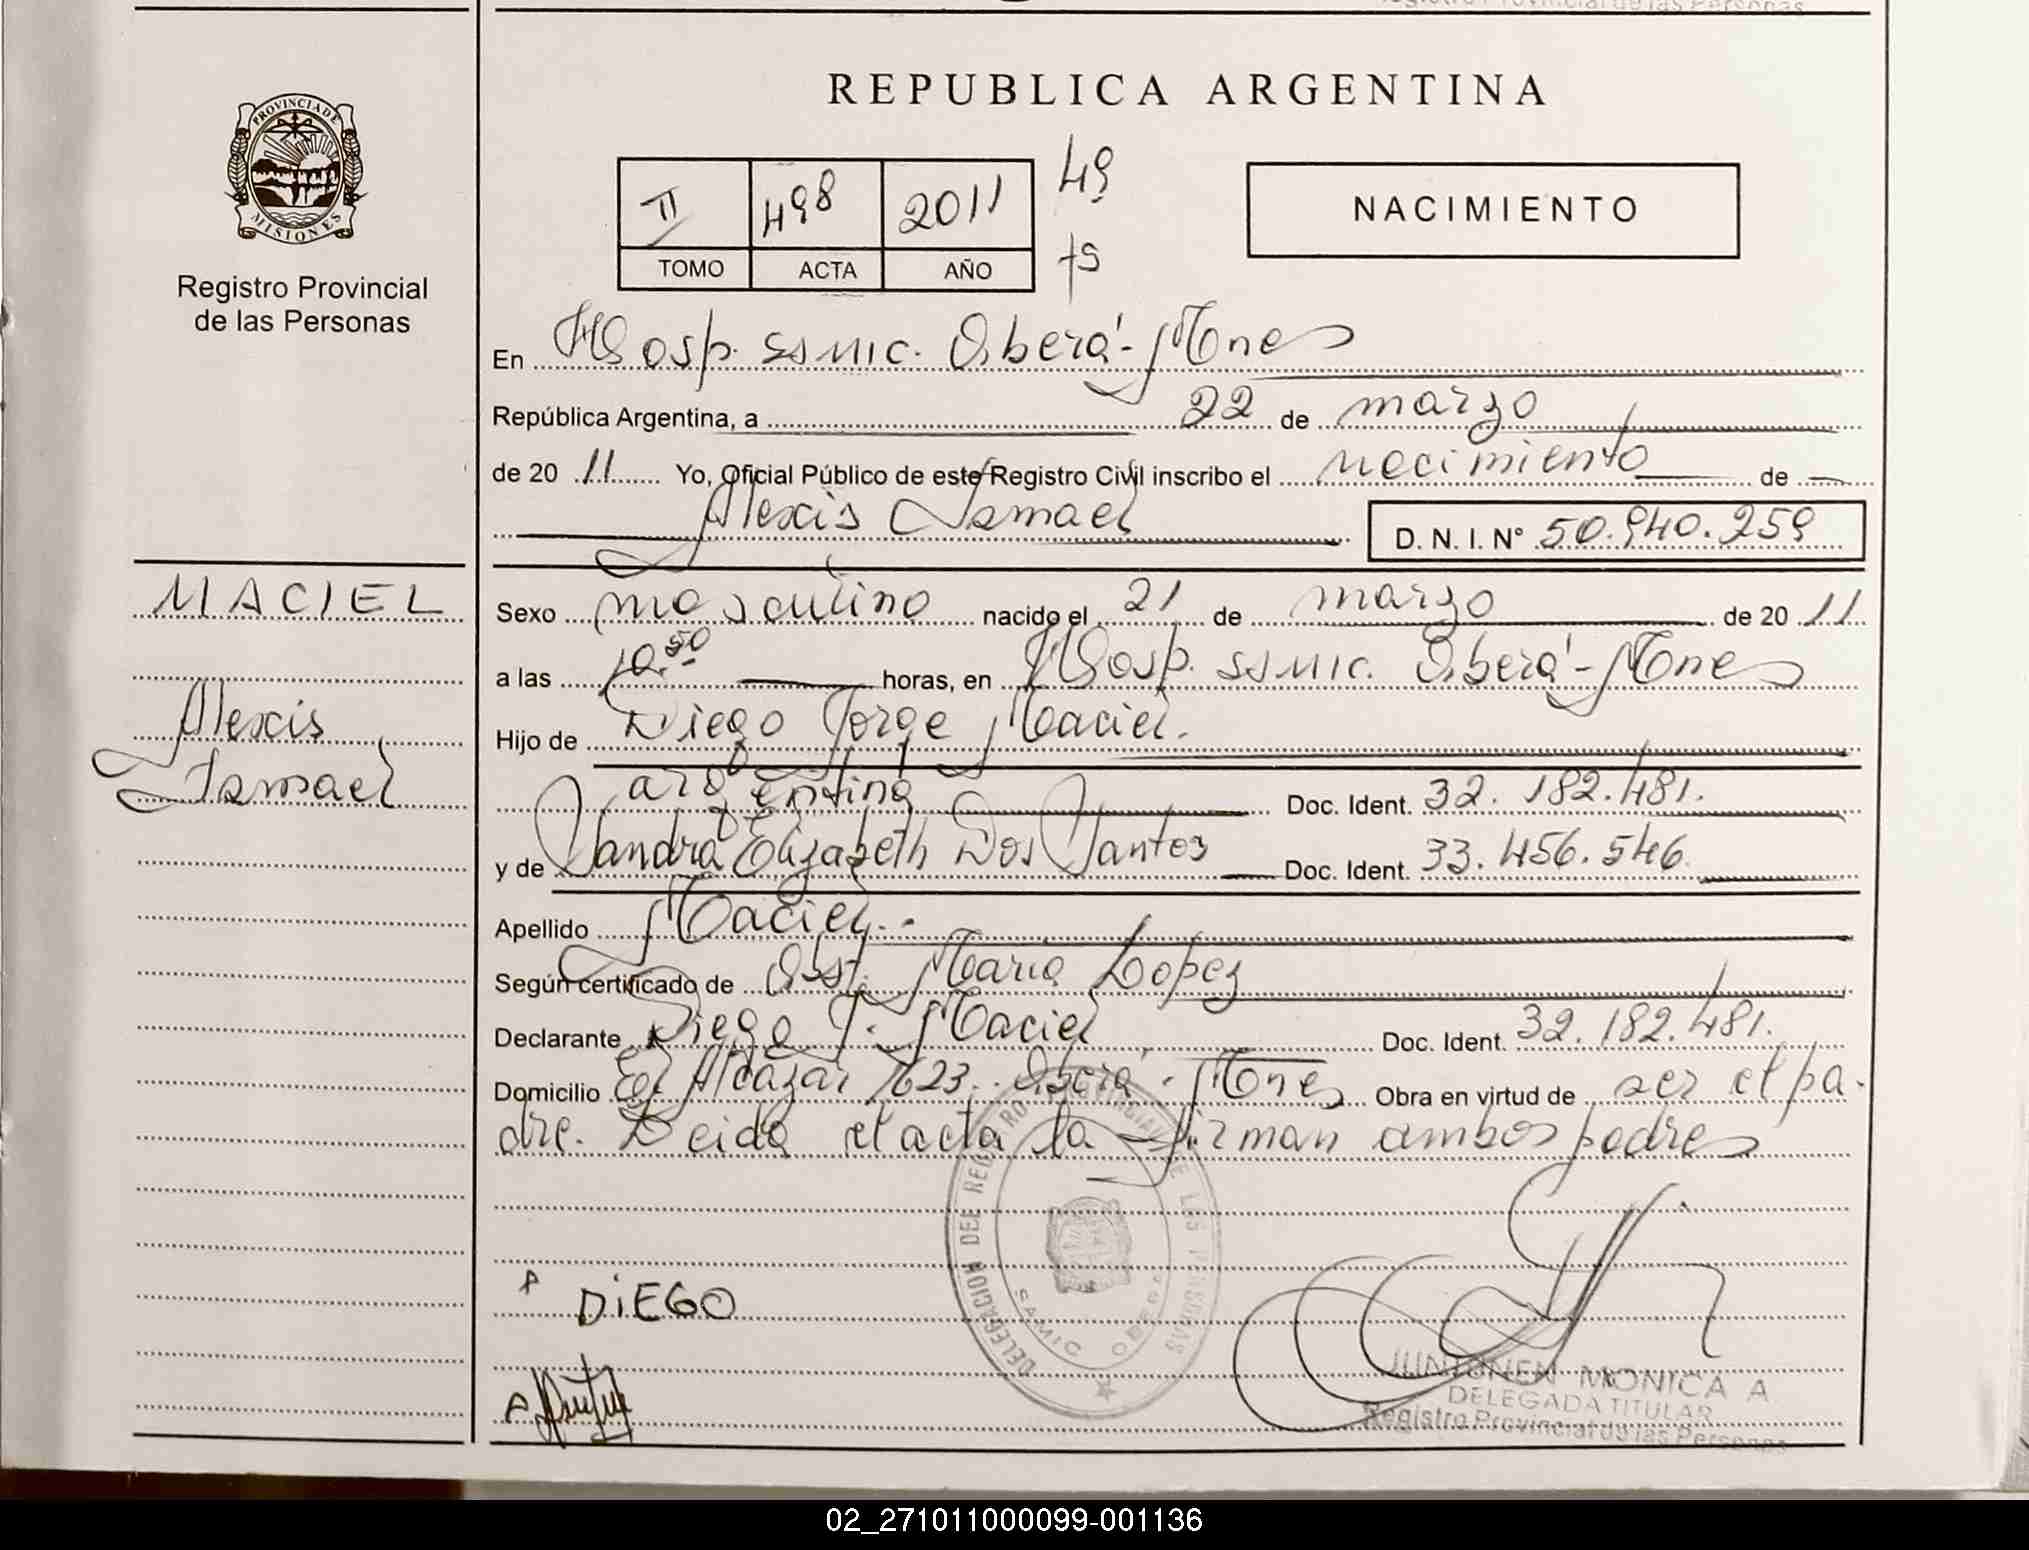 REPUBLICA ARGENTINA
PROVINCIA DE MISIONES
Registro Provincial
de las Personas
II 498 2011
TOMO ACTA AÑO
49
NACIMIENTO
En Hosp. SSMIC. Oberá - Mnes
República Argentina, a 22 de marzo
de 20 11 Yo, Oficial Público de este Registro Civil inscribo el nacimiento de
Alexis Ismael D.N.I. N° 50.940.259
MACIEL
Alexis
Ismael
Sexo masculino nacido el 21 de marzo de 20 11
a las 10.50 horas, en Hosp. SSMIC. Oberá - Mnes
Hijo de Diego Jorge Maciel.
argentino Doc. Ident. 32.182.481.
y de Sandra Elizabeth Dos Santos Doc. Ident. 33.456.546
Apellido Maciel.
Según certificado de Obst. Maria Lopez
Declarante Diego J. Maciel Doc. Ident. 32.182.481.
Domicilio El Alcázar 623. Oberá - Mnes Obra en virtud de ser el pa-
dre. Leida el acta la firman ambos padres
DELEGACION DEL REGISTRO PROVINCIAL DE LAS PERSONAS
SAMIC OBERA
DiEGO
JUNTONEN MONICA A
DELEGADA TITULAR
Registro Provincial de las Personas
02_271011000099-001136